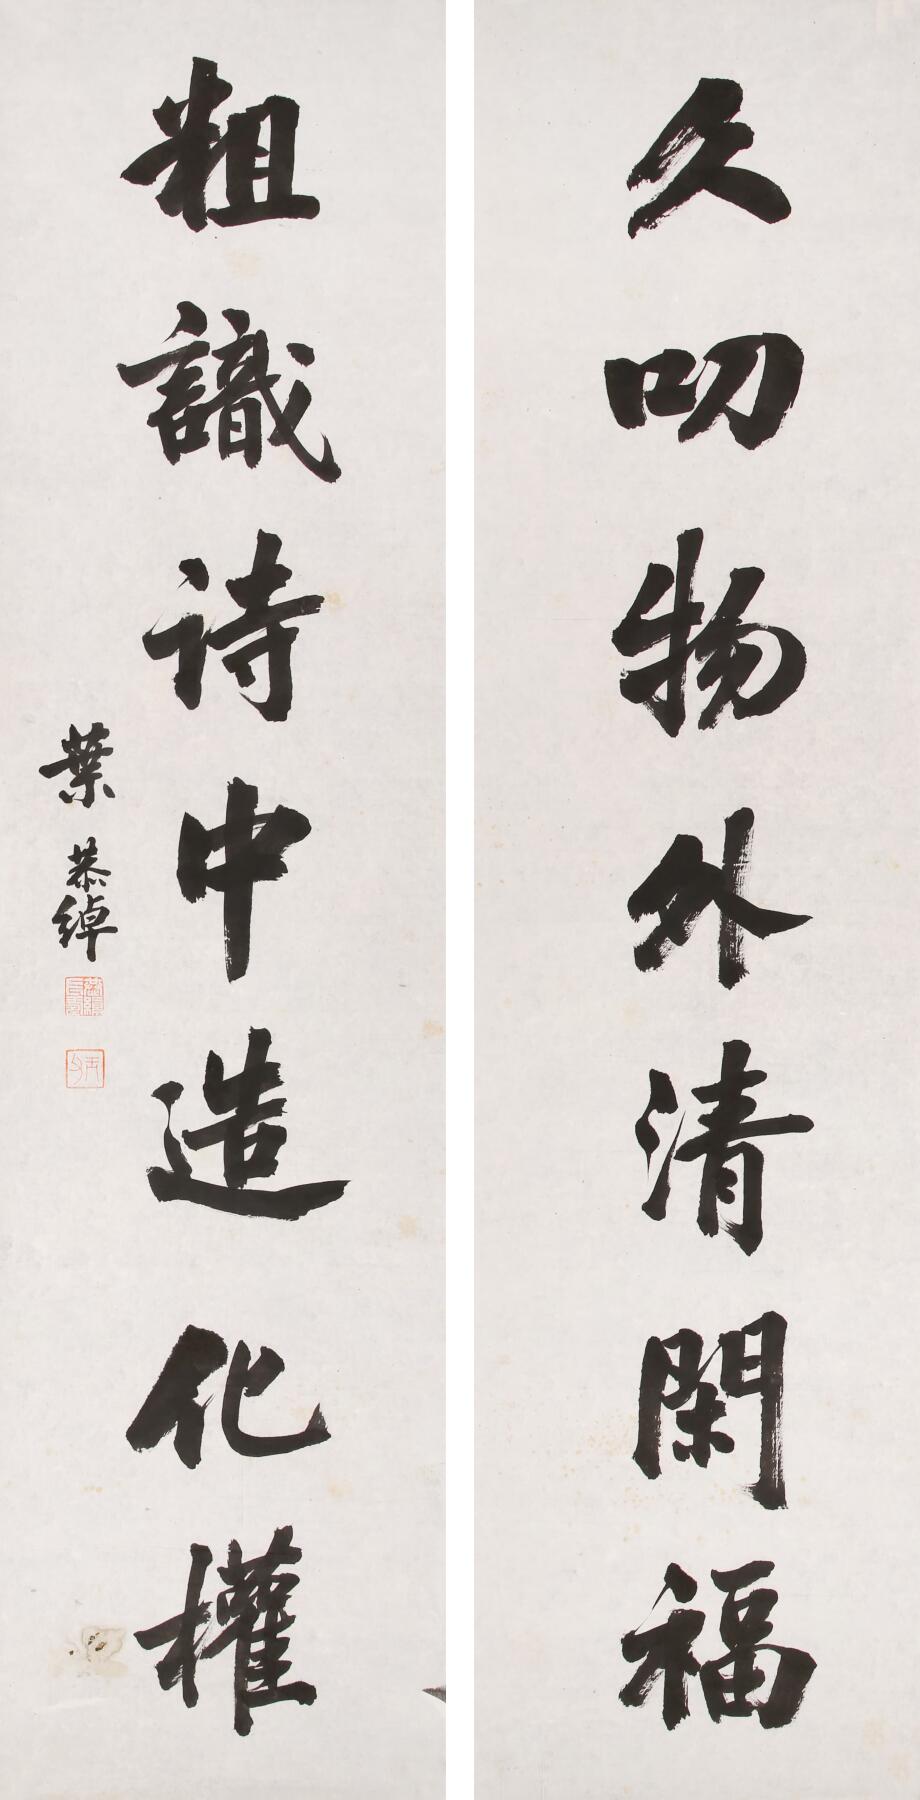 久叨物外清閑福
粗識詩中造化權
葉恭綽